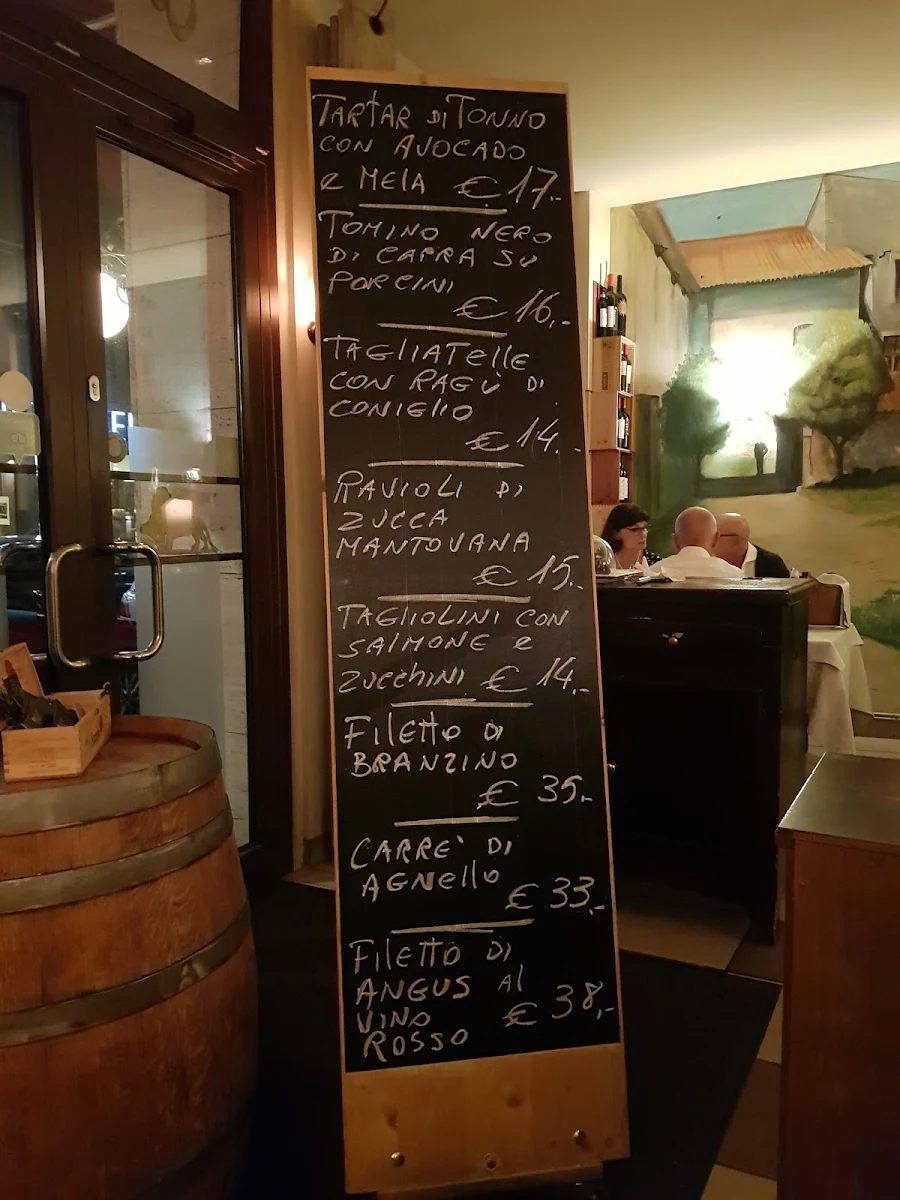 TARTAR DI TONNO
CON AVOCADO
e MELA € 17.-
TOMINO NERO
DI CAPRA SU
PORCINI
€ 16,-
TAGLIATELLE
CON RAGÙ DI
CONIGLIO
€ 14.-
RAVIOLI DI
ZUCCA
MANTOVANA
€ 15.-
TAGLIOLINI CON
SALMONE e
ZUCCHINI € 14,-
FILETTO DI
BRANZINO
€ 35.-
CARRE' DI
AGNELLO
€ 33,-
FILETTO DI
ANGUS AL
VINO € 38,-
ROSSO